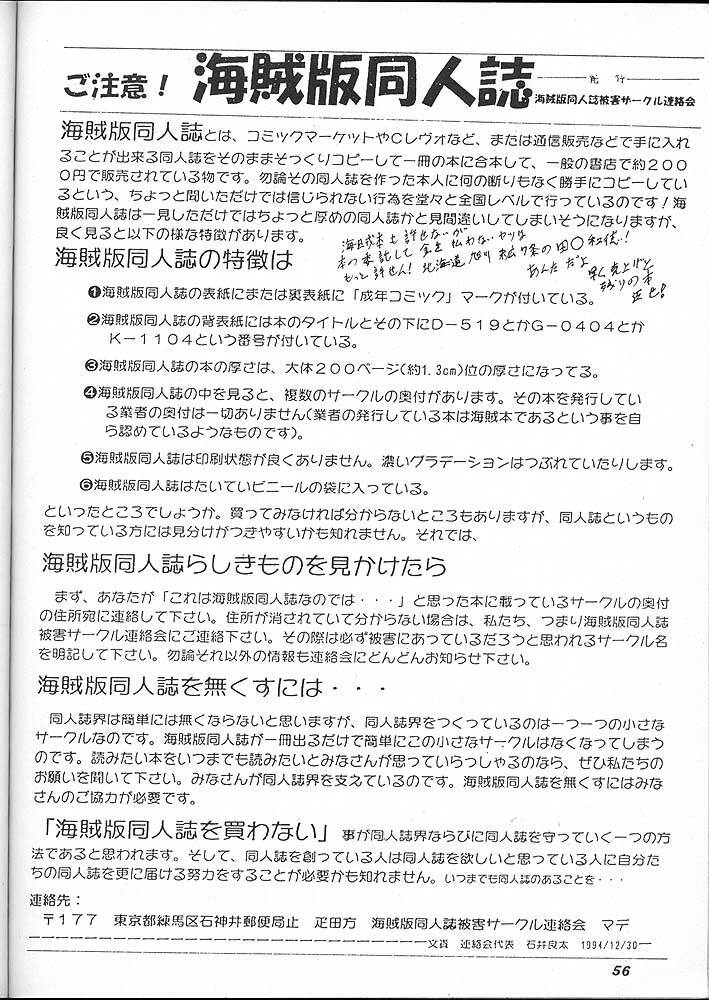 ご注意！ 海賊版同人誌
発行
海賊版同人誌被害サークル連絡会
海賊版同人誌とは、コミックマーケットやCレヴォなど、または通信販売などで手に入れ
ることが出来る同人誌をそのままそっくりコピーして一冊の本に合本して、一般の書店で約２００
０円で販売されている物です。勿論その同人誌を作った本人に何の断りもなく勝手にコピーしてい
るという、ちょっと聞いただけでは信じられない行為を堂々と全国レベルで行っているのです！海
賊版同人誌は一見しただけではちょっと厚めの同人誌かと見間違いしてしまいそうになりますが、
良く見ると以下の様な特徴があります。
海賊本も許せないが
本の委託して金を払わないヤツは
もっと許せん！北海道旭川
あんただよ
海賊版同人誌の特徴は
❶海賊版同人誌の表紙にまたは裏表紙に「成年コミック」マークが付いている。
❷海賊版同人誌の背表紙には本のタイトルとその下にＤ－５１９とかＧ－０４０４とか
Ｋ－１１０４という番号が付いている。
❸海賊版同人誌の本の厚さは、大体２００ページ(約1.3cm)位の厚さになってる。
❹海賊版同人誌の中を見ると、複数のサークルの奥付があります。その本を発行してい
る業者の奥付は一切ありません(業者の発行している本は海賊本であるという事を自
ら認めているようなものです)。
❺海賊版同人誌は印刷状態が良くありません。濃いグラデーションはつぶれていたりします。
❻海賊版同人誌はたいていビニールの袋に入っている。
といったところでしょうか。買ってみなければ分からないところもありますが、同人誌というもの
を知っている方には見分けがつきやすいかも知れません。それでは、
海賊版同人誌らしきものを見かけたら
まず、あなたが「これは海賊版同人誌なのでは・・・」と思った本に載っているサークルの奥付
の住所宛に連絡して下さい。住所が消されていて分からない場合は、私たち、つまり海賊版同人誌
被害サークル連絡会にご連絡下さい。その際は必ず被害にあっているだろうと思われるサークル名
を明記して下さい。勿論それ以外の情報も連絡会にどんどんお知らせ下さい。
海賊版同人誌を無くすには・・・
同人誌界は簡単には無くならないと思いますが、同人誌界をつくっているのは一つ一つの小さな
サークルなのです。海賊版同人誌が一冊出るだけで簡単にこの小さなサークルはなくなってしまう
のです。読みたい本をいつまでも読みたいとみなさんが思っていらっしゃるのなら、ぜひ私たちの
お願いを聞いて下さい。みなさんが同人誌界を支えているのです。海賊版同人誌を無くすにはみな
さんのご協力が必要です。
「海賊版同人誌を買わない」事が同人誌界ならびに同人誌を守っていく一つの方
法であると思われます。そして、同人誌を創っている人は同人誌を欲しいと思っている人に自分た
ちの同人誌を更に届ける努力をすることが必要かも知れません。いつまでも同人誌のあることを・・・
連絡先：
〒１７７ 東京都練馬区石神井郵便局止 疋田方 海賊版同人誌被害サークル連絡会 マデ
文責 連絡会代表 石井良太 1994/12/30
56